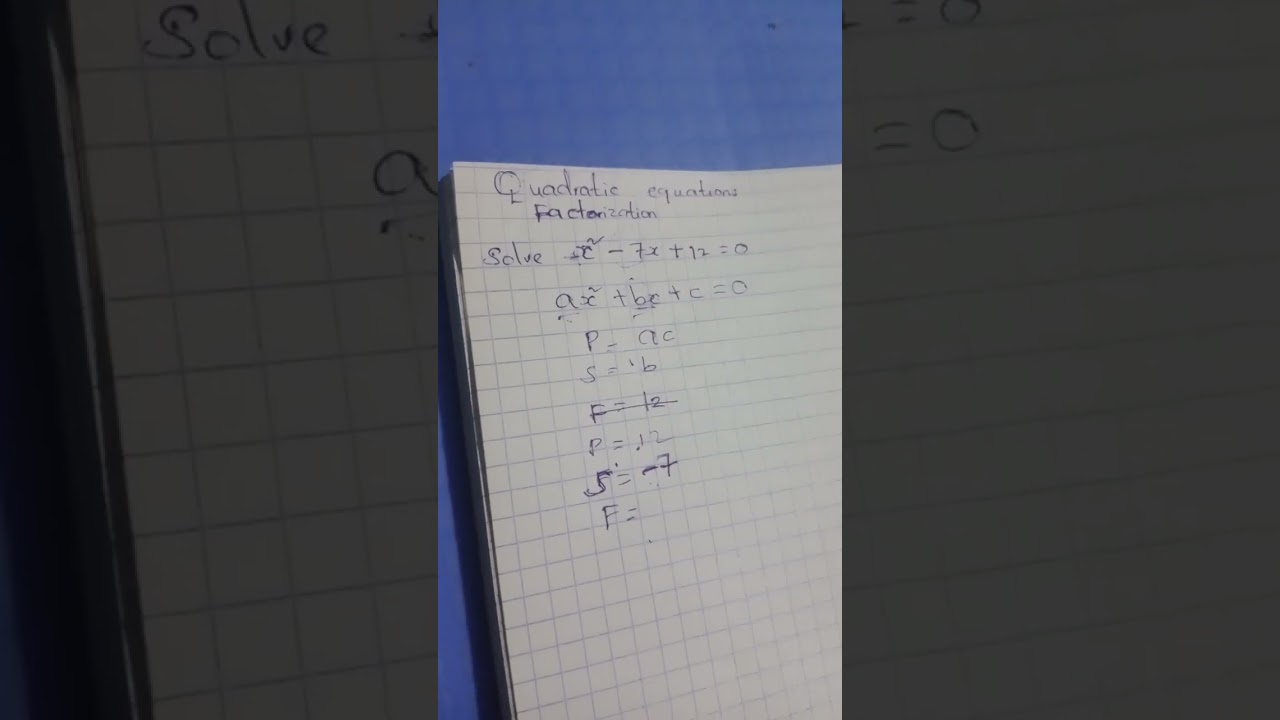 Quadratic equations
Factorization
Solve x² - 7x + 12 = 0
ax² + bx + c = 0
P = ac
S = b
F = 12
P = 12
S = -7
F =